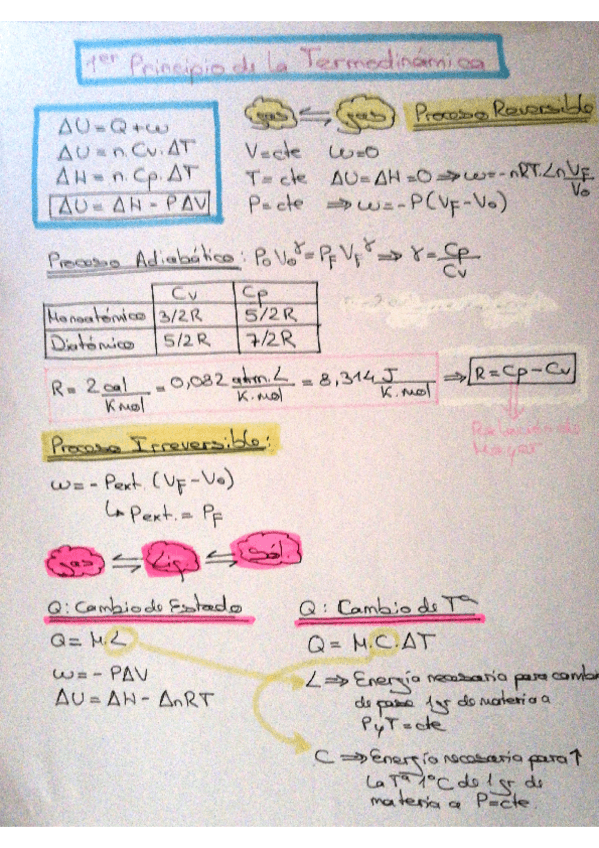 1er Principio de la Termodinámica
ΔU = Q + w
ΔU = n. Cv. ΔT
ΔH = n. Cp. ΔT
ΔU = ΔH - PΔV
gas ⇌ gas Proceso Reversible
V = cte w = 0
T = cte ΔU = ΔH = 0 ⇒ w = -nRT. Ln VF/Vo
P = cte ⇒ w = - P (VF - Vo)
Proceso Adiabático: Po Vo^γ = PF VF^γ ⇒ γ = Cp/Cv
Cv Cp
Monoatómico 3/2R 5/2R
Diatómico 5/2R 7/2R
R = 2 cal/K mol = 0,082 atm. L/K. mol = 8,314 J/K. mol ⇒ R = Cp - Cv
Relación de
Mayer
Proceso Irreversible:
w = - Pext. (VF - Vo)
↳ Pext. = PF
gas ⇌ Lq ⇌ Sól
Q: Cambio de Estado
Q = M. L
w = - PΔV
ΔU = ΔH - ΔnRT
Q: Cambio de Tª
Q = M. C. ΔT
L ⇒ Energía necesaria para cambi
de fase 1gr de materia a
P y T = cte
C ⇒ Energía necesaria para ↑
La Tª 1ºC de 1 gr de
materia a P = cte.